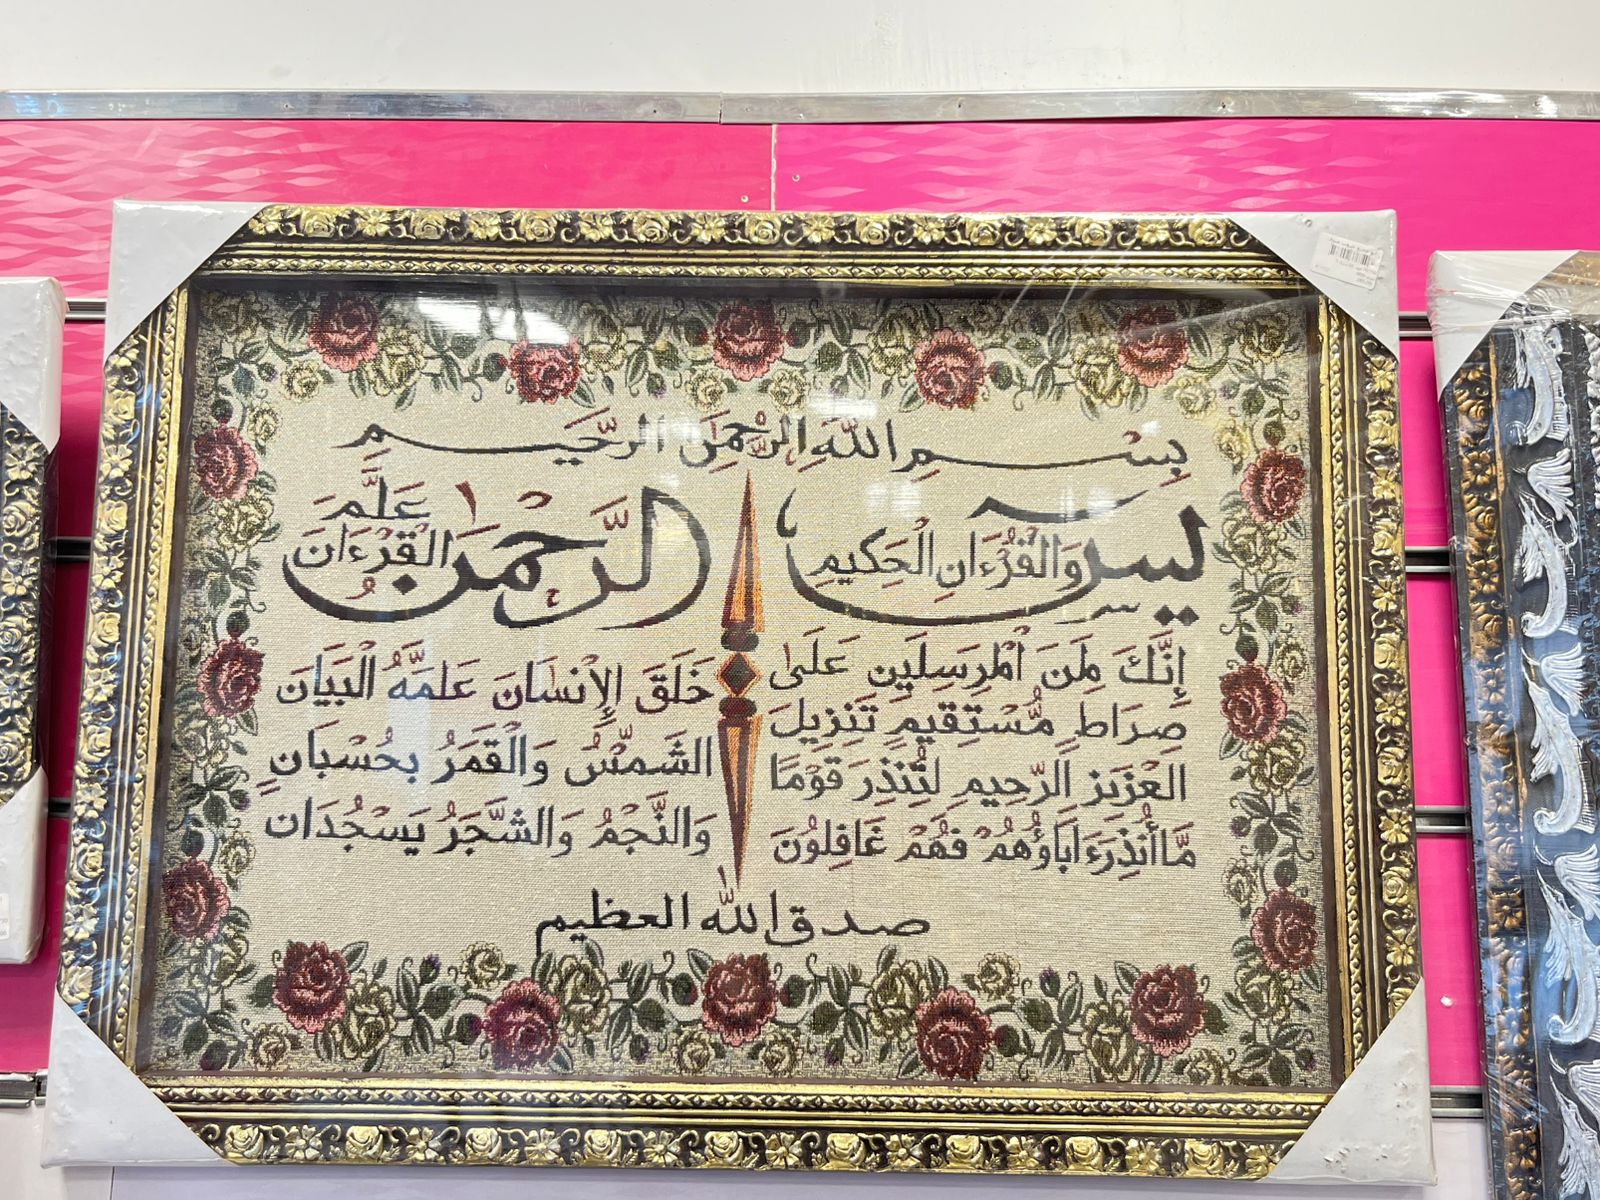 بِسْمِ اللَّهِ الرَّحْمَنِ الرَّحِيمِ
يس وَالْقُرْءَانِ الْحَكِيمِ
إِنَّكَ لَمِنَ الْمُرْسَلِينَ عَلَى
صِرَاطٍ مُّسْتَقِيمٍ تَنزِيلَ
الْعَزِيزِ الرَّحِيمِ لِتُنذِرَ قَوْمًا
مَّا أُنذِرَ ءَابَاؤُهُمْ فَهُمْ غَافِلُونَ
الرَّحْمَنُ عَلَّمَ الْقُرْءَانَ
خَلَقَ الْإِنْسَانَ عَلَّمَهُ الْبَيَانَ
الشَّمْسُ وَالْقَمَرُ بِحُسْبَانٍ
وَالنَّجْمُ وَالشَّجَرُ يَسْجُدَانِ
صدق الله العظيم